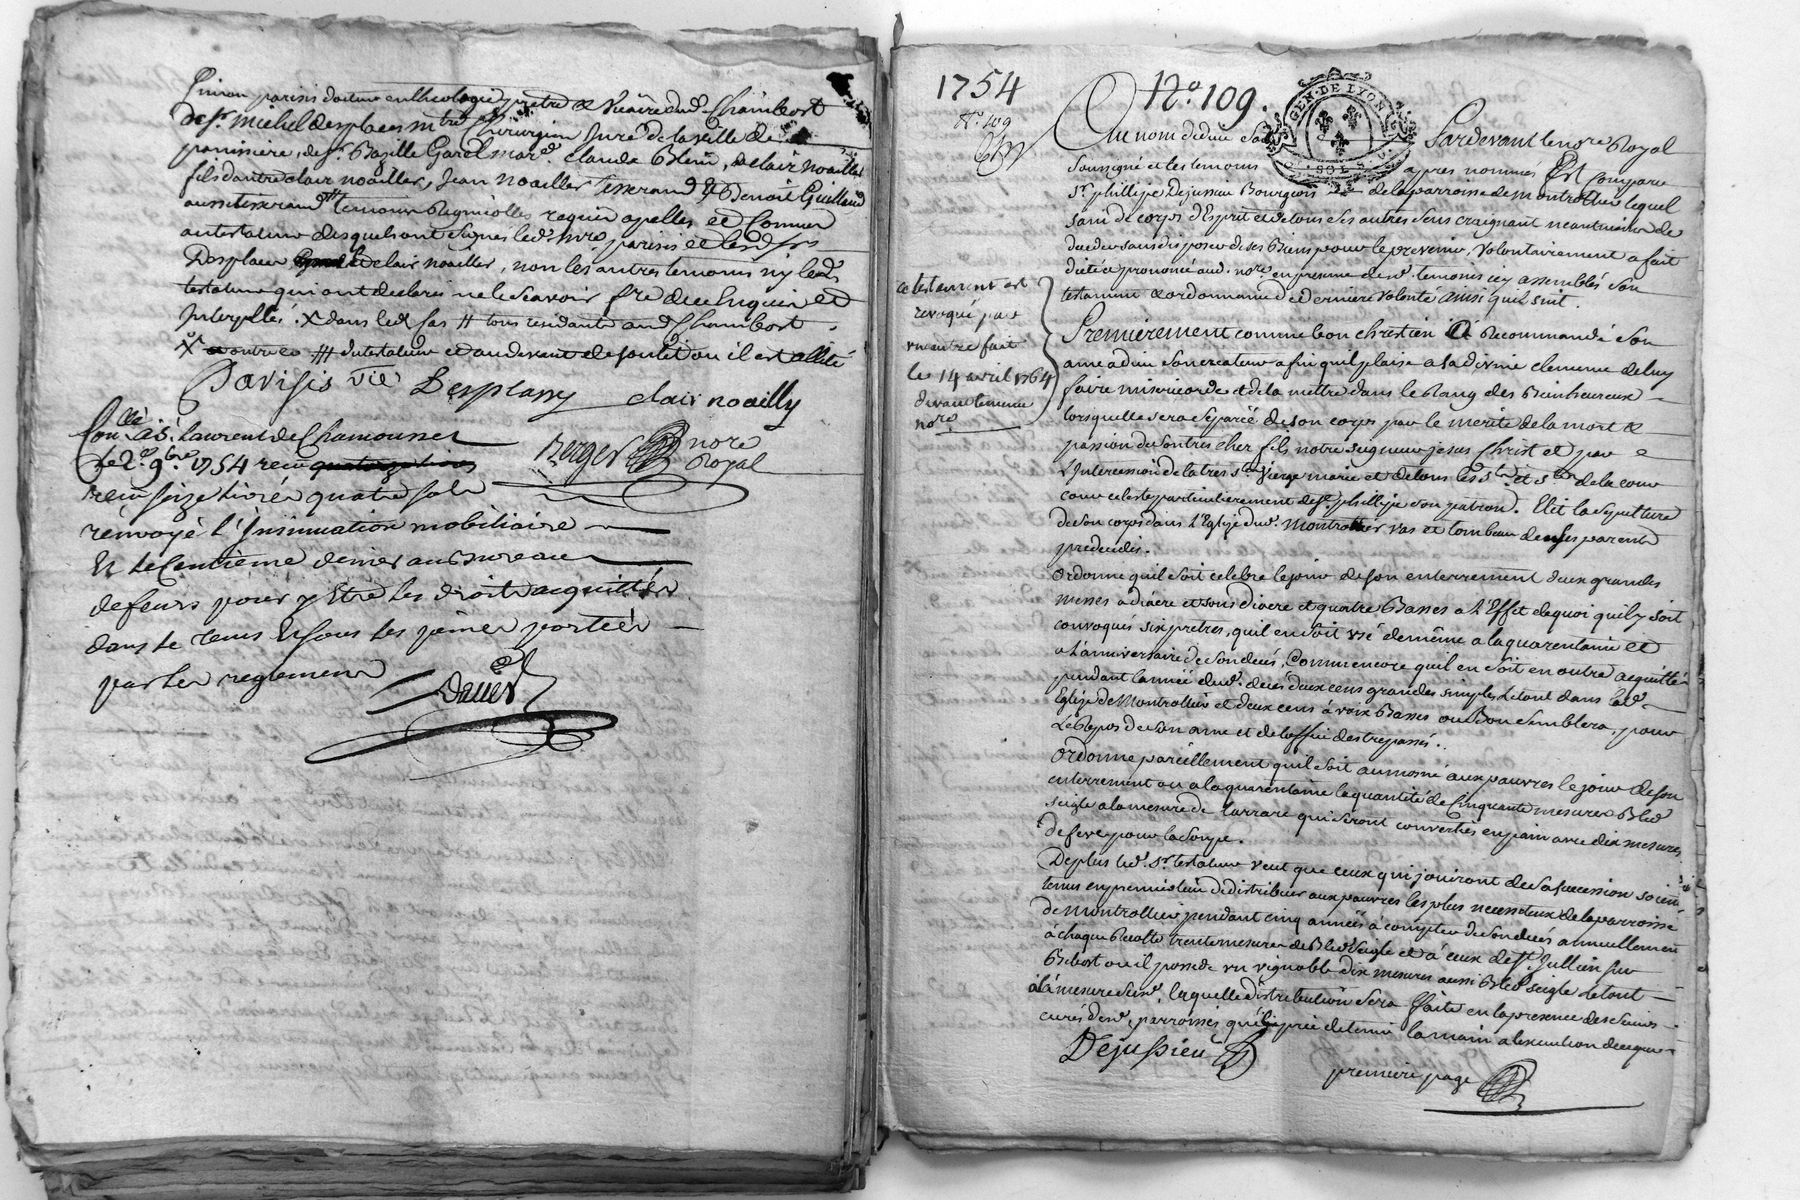 Simon parisis docteur en theologie pretre & vicaire dud. Chambost
de Sr. michel desplaces mtre Chirurgien Juré de la ville de
panissiere, de Sr. Bazille Garel mard. claude Blein, de clair noailler
fils d'autre clair noailler, Jean noailler tisserand & Benoit Guilland
aussi tisserand temoins requis apellés et Connus
au testateur desquels ont signés led. mre parisis et lesd. srs
Desplaces et clair noailler, non les autres temoins ny led.
testateur qui ont declarés ne le scavoir fre de ce Enquis et
Interpellés. X dans led. cas # tous residants aud. Chambost.
X ### du testateur et au devant de son lit ou il est allité
Parisis vic Desplasses clair noailly
Conlé à St. Laurent de Chamousset
le 2e. 9bre. 1754 recu quatorze livres
Berger nore Royal
recu seize livres quatre sols
renvoyé l'Insinuation mobiliaire
Et le Centieme denier au Bureau
de feurs pour y Etre les droits acquittés
dans le tems Et sous les peines portées
par les reglemens
1754
No. 109.
No. 109
GEN. DE LYON
SOL
Au nom de dieu soit Pardevant le nore Royal
Soussigné et les temoins apres nommés Est Comparu
Sr. phillipe Dejussieu Bourgeois de la parroisse de montrottier lequel
sain de corps d'Esprit et de tous ses autres sens craignant neantmoins de
deceder sans disposer de ses Biens pour le prevenir, volontairement a fait
dicté et prononcé aud. nore. en presence desd. temoins icy assemblés son
testament & ordonnance de derniere volonté ainsi quil suit.
ce testament est
revoqué par
un autre fait
le 14 avril 1764
devant le meme
nore
Premierement comme bon chretien a Recommandé son
ame a dieu son createur afin quil plaise a la divine clemence de luy
faire misericorde et de la mettre dans le Rang des Bienheureux
lorsquelle sera separée de son corps par le merite de la mort &
passion de son tres cher fils notre seigneur jesus Christ et par
l'Intercession de la tres ste. Vierge marie et de tous les sts. et stes. de la cour
cour celeste particulierement de St. phillipe son patron. Elit la sepulture
de son corps dans l'Eglise dud. Montrottier vas et tombeau de ses parents
predecedés.
ordonne quil soit celebré le jour de son enterrement deux grandes
messes a diacre et sous diacre et quatre Basses a l'Effet de quoi quil y soit
convoqués six pretres, quil en soit usé de même a la quarentaine et
a l'anniversaire de son decés, Comme encore quil en soit en outre acquitté
pendant l'année dud. decés deux cens grandes simples le tout dans lad.
Eglise de Montrottier et deux cens à voix Basses ou Bon semblera, pour
le Repos de son ame et de celles des trepassés.
ordonne pareillement quil soit aumoné aux pauvres le jour de son
enterrement ou a la quarentaine la quantité de Cinquante mesures Bled
seigle a la mesure de tarrare qui seront convertis en pain avec dix mesures
de feves pour la soupe.
De plus led. sr. testateur veut que ceux qui jouiront de sa succession soient
tenus en premier lieu de distribuer aux pauvres les plus necessiteux de la parroisse
de montrottier pendant cinq années à compter de son decés annuellement
à chaque Recolte trente mesures de Bled seigle et à ceux de St. Jullien sur
Bibost ou il possede un vignoble dix mesures aussi Bled seigle le tout
à la mesure susd. laquelle distribution sera faite en la presence des sieurs
curés desd. parroisses quil prie de tenir la main a l'execution de ce que
Dejussieu
premiere page